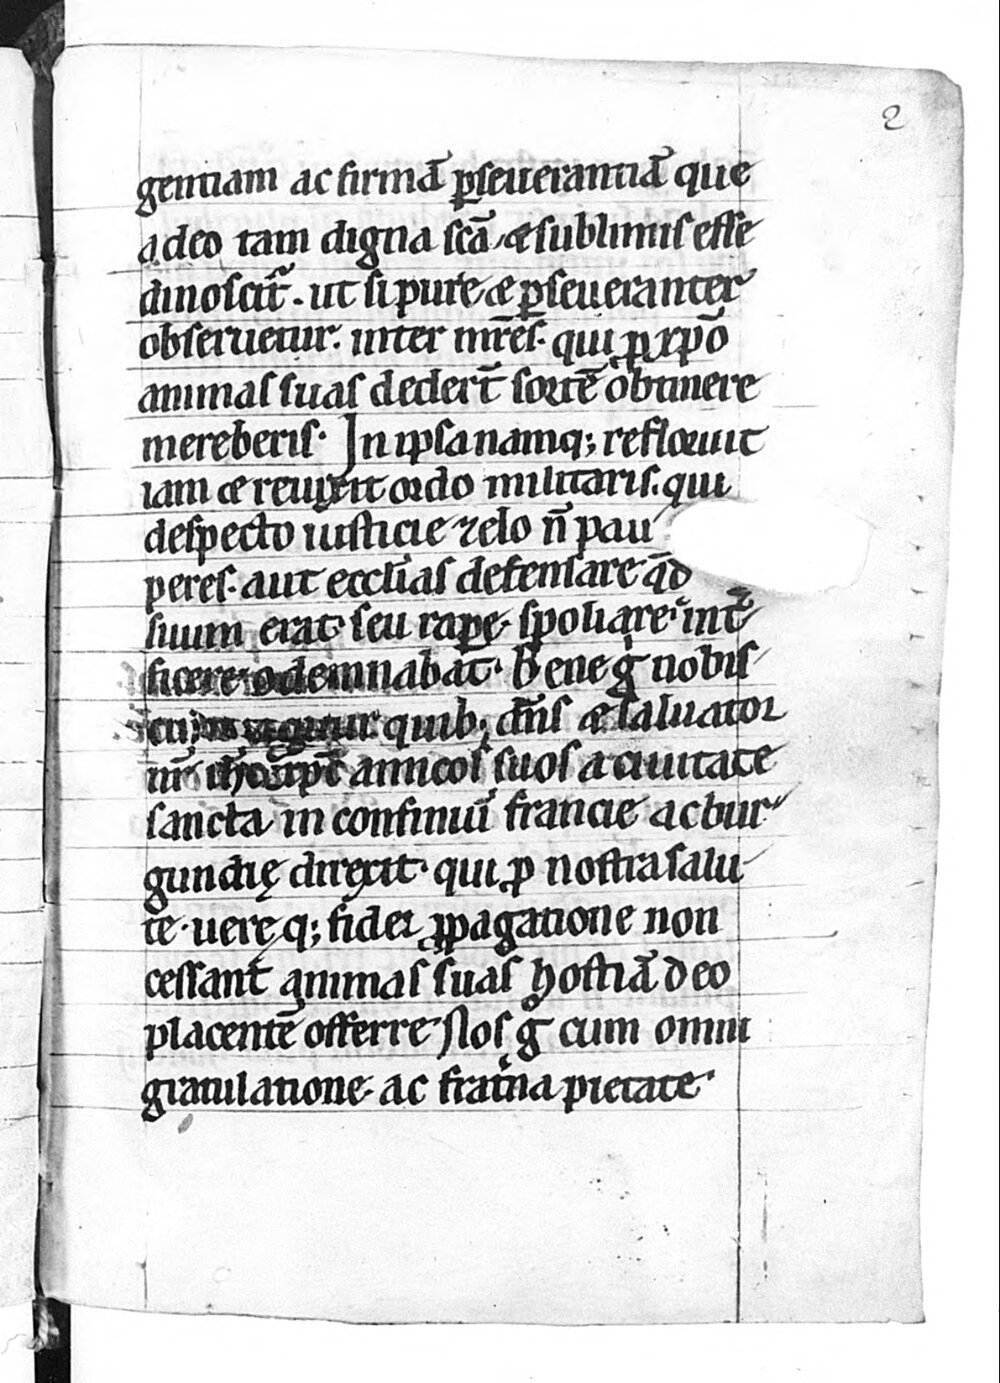 2
gentiam ac firmā ꝑseuerantiā que
adeo tam digna scā, & sublimis esse
dinoscit᷑. ut si pure & ꝑseueranter
obseruetur. inter mr̄es. qui ꝓ xpō
animas suas dedert̄ sortē obtinere
mereberis. In ipsa namq; refloruit
iam & reuixit ordo militaris. qui
despecto iusticie zelo n̄ pau
peres. aut ecclīas defensare qd̄
suum erat. seu raꝑe. spoliare. int̄
ficere demnabat. Bene g̊ nobis
quib; dn̄s & saluator
nr̄ ihc xpc amicos suos a ciuitate
sancta in confiniū francie ac bur
gundię direxit. qui ꝓ nostra salu
te. uereq; fidei ꝓpagatione non
cessant̄ animas suas hostiā deo
placentē offerre. Nos g̊ cum omni
gratulatione. ac frat̄na pietate.